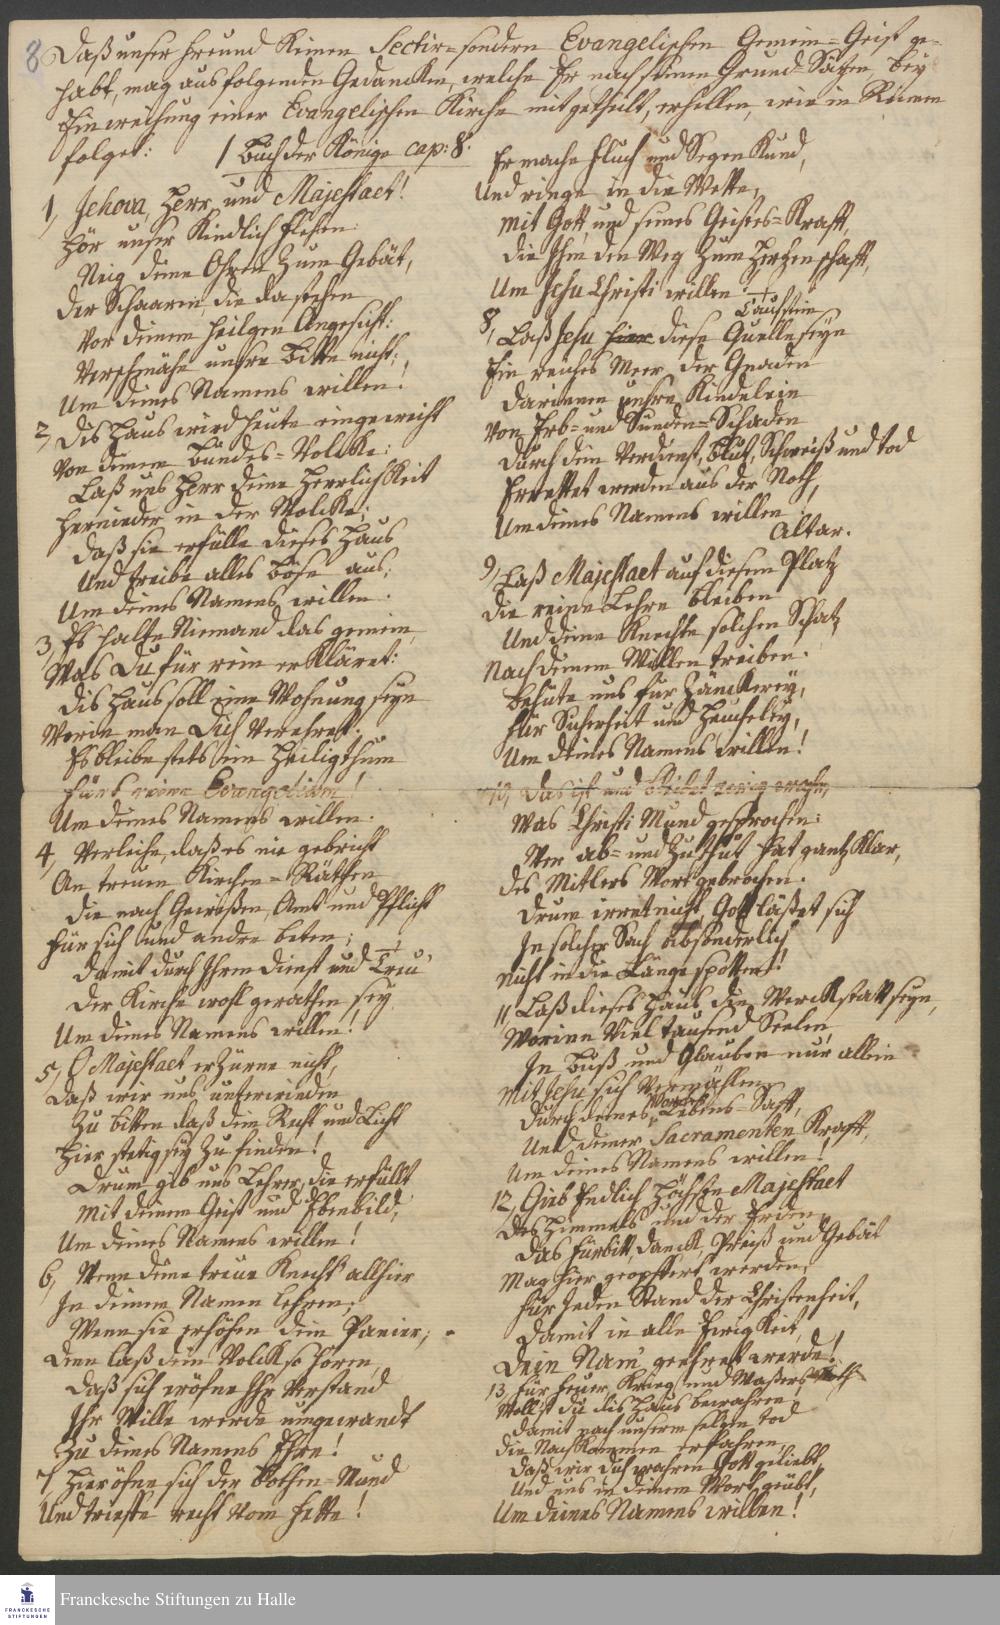 8
Daß unser Freund keinen Sectir=sondern Evangelischen Gemein=Geist ge-
habt, mag aus folgenden Gedancken, welche Er nach seinen Grund=Sätzen bey
Einweihung einer Evangelischen Kirche mitgetheilt, erhellen, wie in Reimen
folget: 1 Buch der Könige cap: 8.
1, Jehova, Herr und Majestaet!
Hör unser Kindlich flehen:
Neig deine Ohren zum Gebät,
der Schaaren, die da stehen
Vor deinem heilgen Angesicht:
Verschmähe unsre Bitte nicht;
Um deines Namens willen!
2, Dis Haus wird heute eingeweiht
Von deinem Bundes=Volcke:
Laß uns Herr deine Herrlichkeit
hernieder in der Wolcke;
daß sie erfülle dieses Haus
Und treibe alles böse aus;
Um deines Namens willen.
3, Es halte Niemand das gemein,
Was Du für rein erkläret:
dis Haus soll eine Wohnung seyn
Worin man Dich verehret:
Es bleibe stets ein Heiligthum
fürs reine Evangelium!
Um deines Namens willen.
4, Verleihe, daß es nie gebricht
An treuen Kirchen=Räthen
die nach Gewißen, Amt und Pflicht
für sich und andre beten;
damit durch Ihren dienst und Treu
der Kirche wohl gerathen sey
Um deines Namens willen!
5, O Majestaet erzürne nicht,
daß wir uns unterwinden
Zu bitten daß dein Recht und Licht
hier stetig sey zu finden!
drum gib uns Lehrer, die erfüllt
mit deinem Geist und Ebenbild;
Um deines Namens willen!
6, Wenn deine treue Knecht allhier
In deinem Namen lehren;
Wenn sie erhöhen dein Panier;
denn laß dein Volck so hören,
daß sich eröfne Ihr Verstand
Ihr Wille werde umgewandt
Zu deines Namens Ehre!
7, Hier öfne sich der Bothen=Mund
Und trieffe recht vom Fette!
Er mache Fluch und Segen kund,
Und ringe in die Wette,
mit Gott und seines Geistes=Krafft,
die Ihm den Weg zum Hertzen schafft,
Um Jesu Christi willen.
Taufstein
8, Laß Jesu hier diese Quelle seyn
Ein reiches Meer der Gnaden
darinnen unsre Kindelein
Von Erb= und Sünden=Schaden
durch dein Verdienst, Blut, Schweiß und tod
Errettet werden aus der Noth,
Um deines Namens willen.
Altar.
9, Laß Majestaet auf diesem Platz
die reine Lehre bleiben
Und deine Knechte solchen Schatz
Nach deinem Willen treiben.
Behüte uns für Zänckerey,
für Sicherheit und Heucheley,
Um deines Namens willen!
10, das ist und bleibet ewig wahr,
Was Christi Mund gesprochen:
Wer ab= und zuthut hat gantz klar,
des Mitlers Wort gebrochen.
drum irret nicht, Gott läßet sich
In solcher Sach absonderlich
nicht in die Länge spotten!
11, Laß dieses Haus die Werckstatt seyn,
Worinn viel tausend Seelen
In Buß und Glauben nur allein
mit Jesu sich vermählen
durch deines Wortes Lebens=Safft,
Und deiner Sacramenten Krafft,
Um deines Namens willen!
12, Gieb Endlich höchste Majestaet
des Himmels und der Erden,
das fürbitt, Danck, Preiß und Gebät
mag hier geopffert werden,
für Jeden Stand der Christenheit,
damit in alle Ewigkeit,
dein Nam geehret werde!
13, für feuer, Krieg und Waßers=Noth
Wollst du dis Haus bewahren,
damit nach unserm selgen tod
die Nachkommen erfahren,
daß wir dich wahren Gott geliebt,
Und uns in deinem Wort geübt,
Um deines Namens willen!
FRANCKESCHE STIFTUNGEN
Franckesche Stiftungen zu Halle